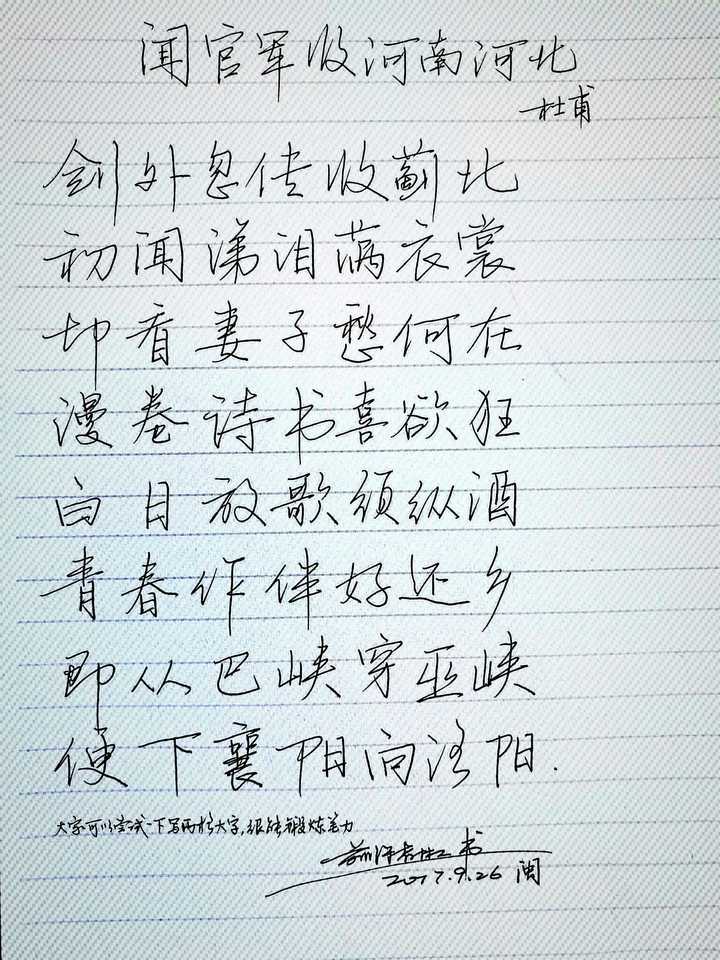 闻官军收河南河北
杜甫
剑外忽传收蓟北
初闻涕泪满衣裳
却看妻子愁何在
漫卷诗书喜欲狂
白日放歌须纵酒
青春作伴好还乡
即从巴峡穿巫峡
便下襄阳向洛阳.
大家可以尝试一下写两格大字,很能锻炼笔力
书
2017.9.26 闽